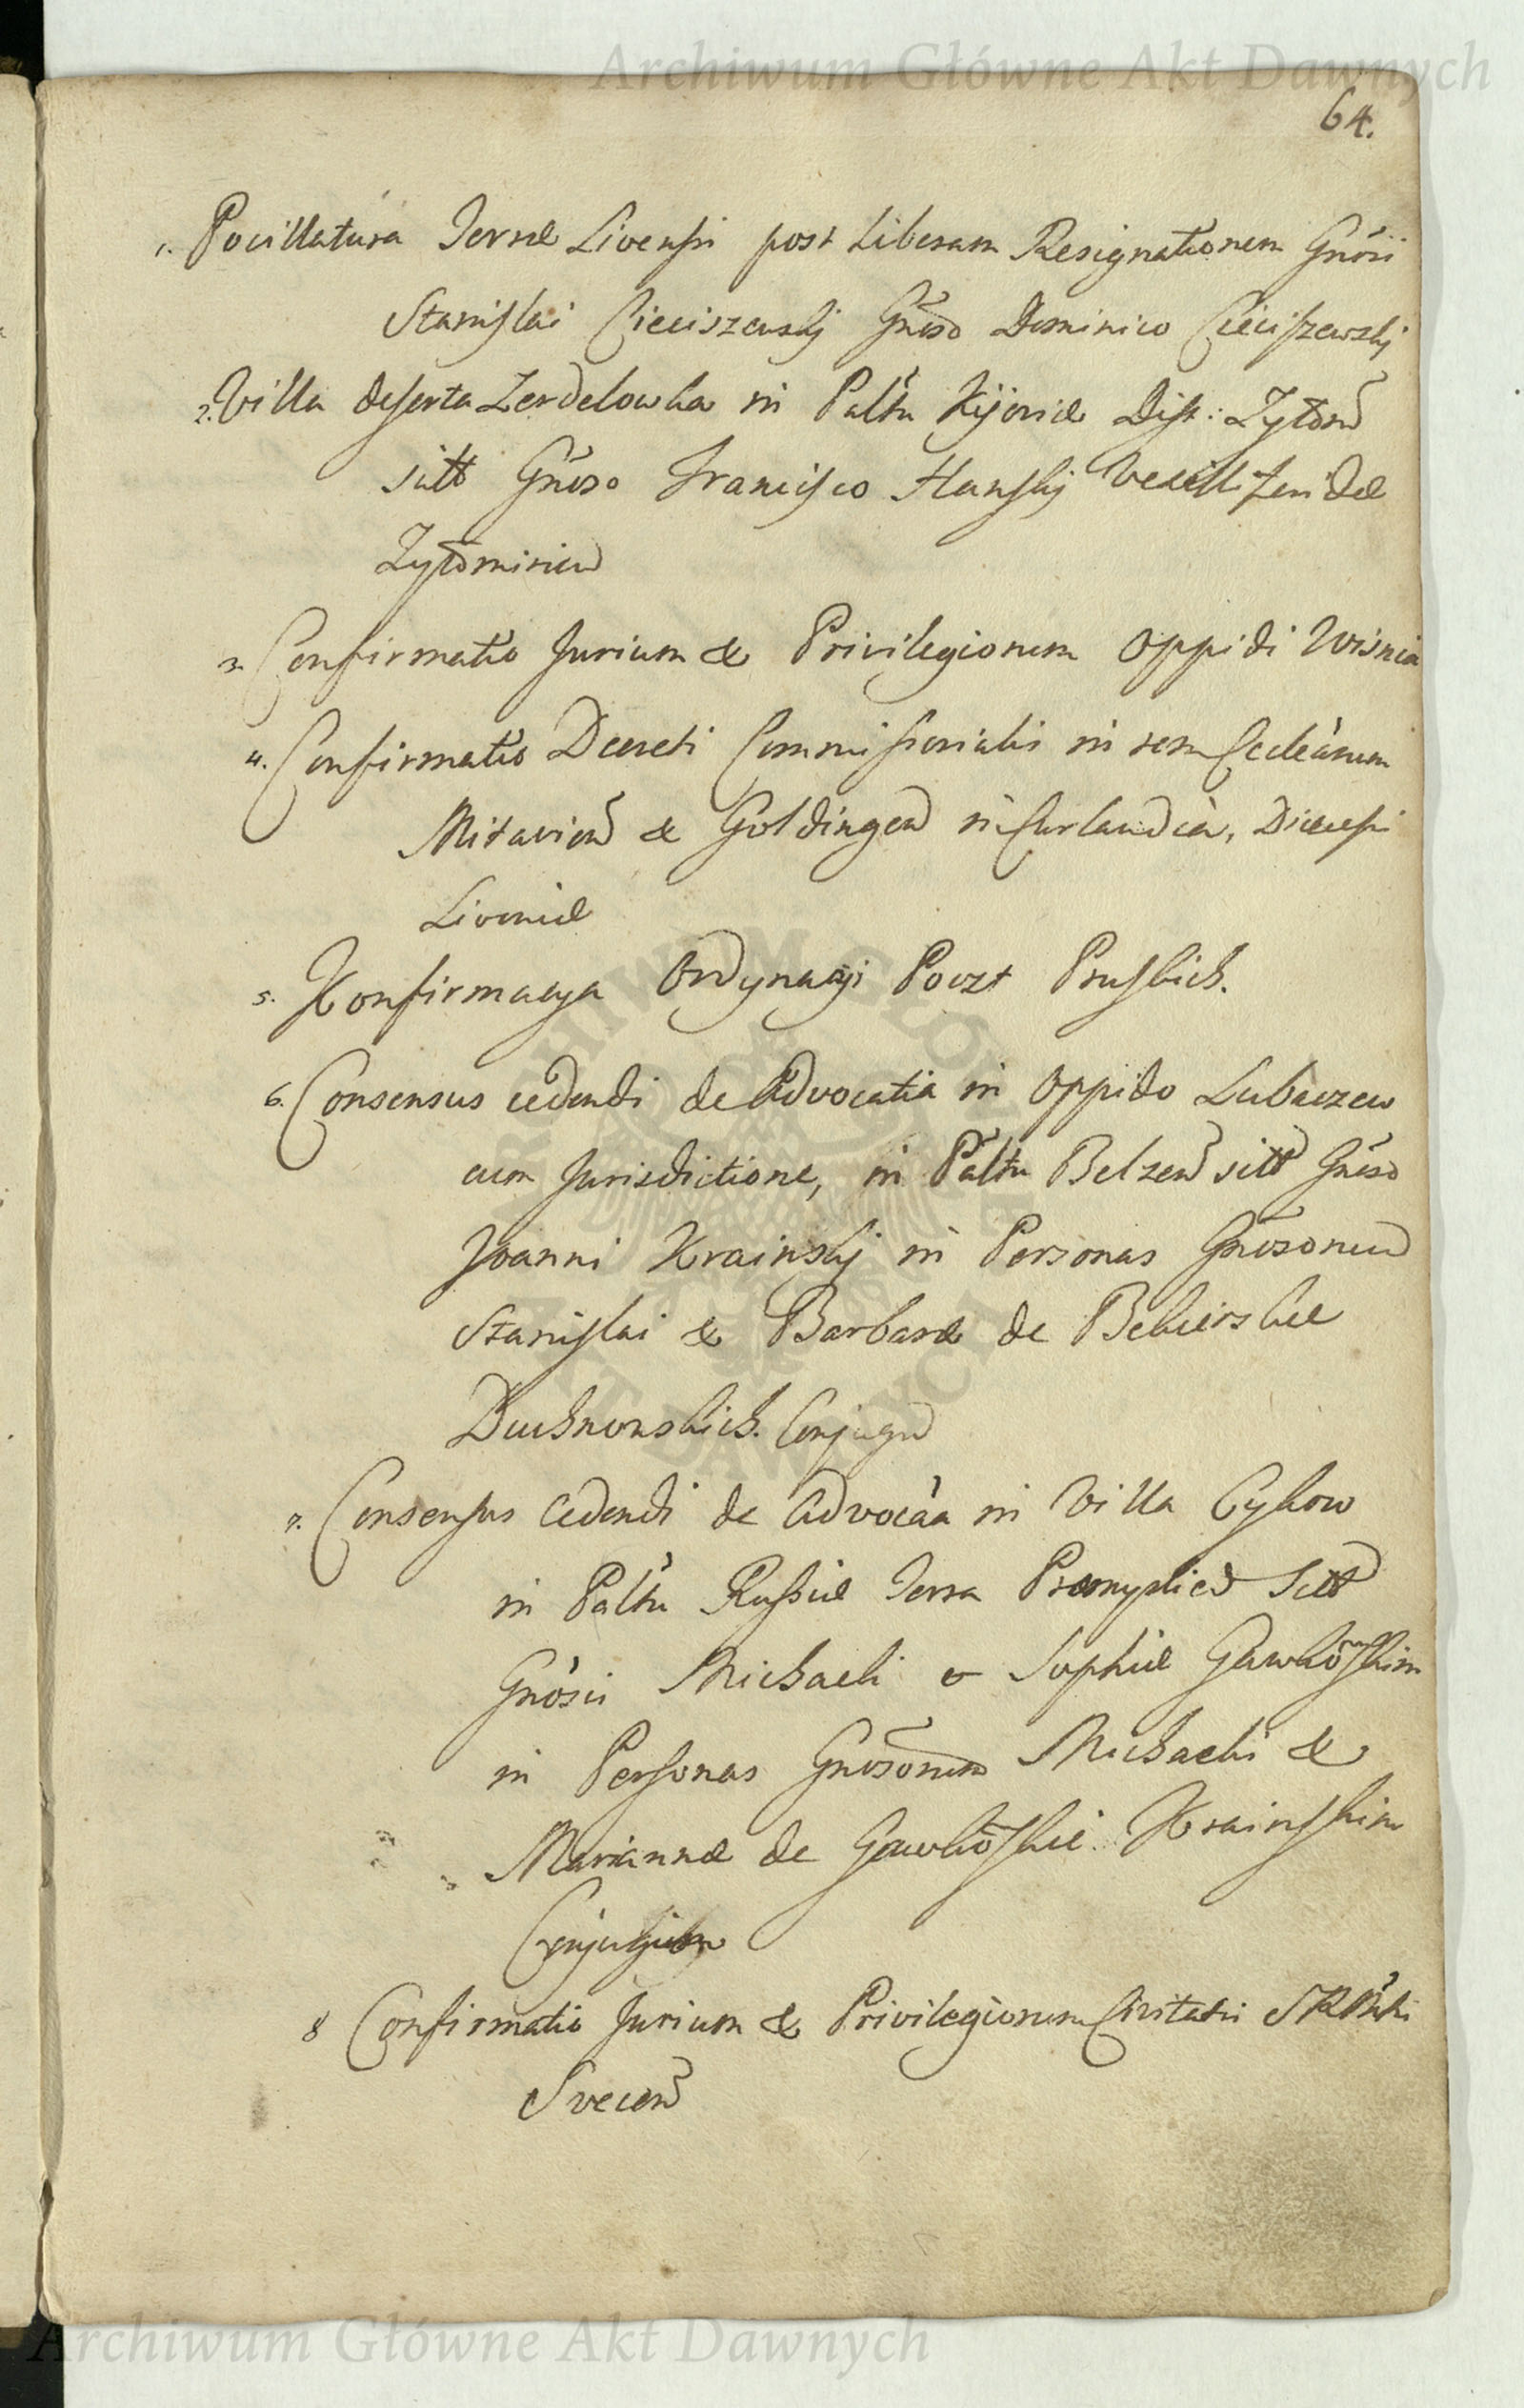 Archiwum Główne Akt Dawnych
64.
1. Pocillatura Terræ Livensi post Liberam Resignationem Gnosi
Stanislai Cieciszewskj Gnoso Dominico Cieciszewskj
2. Villa deserta Zerdelowka in Paltu Kijoviæ Dist: Zytom
sitt Gnoso Francisco Hanskj Vexill
Zytomirien
3. Confirmatio Jurium & Privilegiorum Oppidi Wisnia
4. Confirmatio Decreti Commissorialis in rem Ecclearum
Mitavien & Goldingen in Curlandia, Diæcesi
Livoniæ
5. Konfirmacya Ordynacyi Poczt Pruskich.
6. Consensus cedendi de Advocatia in Oppido Lubaczew
cum Jurisdictione, in Paltu Belzen sitt Gnoso
Joanni Krainskj in Personas Gnosorum
Stanislai & Barbaræ de
Duchnowskich. Conjugu
7. Consensus Cedendi de Advocaa in Villa Cykow
in Paltu Russiæ Terra Præmyslien Sitt
Gnosis Michaeli & Sophiæ
in Personas Gnosorum Michaelis &
Mariannæ de Krainskim
8 Confirmatio Jurium & Privilegiorum Civitatis
Svecen
ARCHIWUM GŁÓWNE AKT DAWNYCH
Archiwum Główne Akt Dawnych